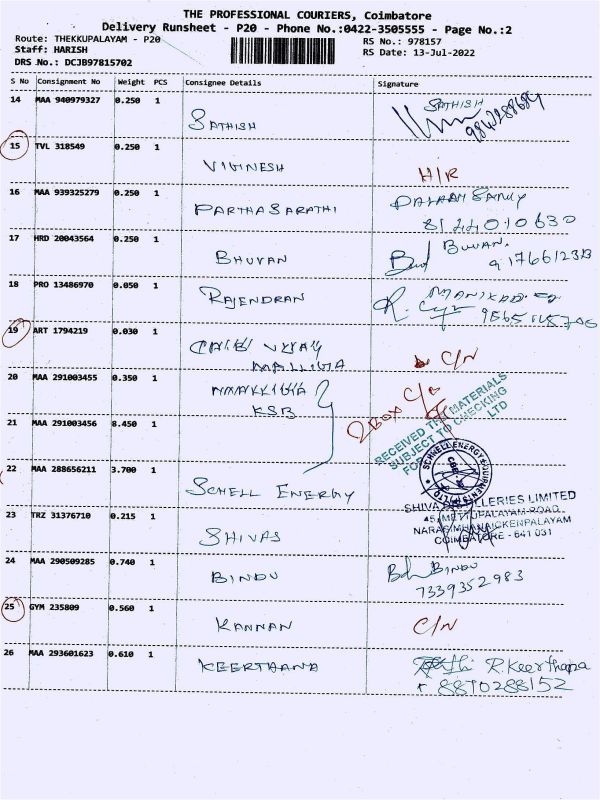 THE PROFESSIONAL COURIERS, Coimbatore
Delivery Runsheet - P20 - Phone No.:0422-3505555 - Page No.:2
Route: THEKKUPALAYAM - P20
RS No.: 978157
Staff: HARISH
RS Date: 13-Jul-2022
DRS No.: DCJB97815702
S No Consignment No Weight PCS Consignee Details Signature
14 MAA 940979327 0.250 1 SATHISH SATHISH
15 TVL 318549 0.250 1 VIVINESH H/R
16 MAA 939325279 0.250 1 PARTHASARATHI
17 HRD 20043564 0.250 1 BHUVAN BUVAN.
18 PRO 13486970 0.050 1 RAJENDRAN
19 ART 1794219 0.030 1 VIJAY C/N
20 MAA 291003455 0.350 1
KSB
2 BOX C/B
21 MAA 291003456 8.450 1
RECEIVED THE MATERIALS
SUBJECT TO CHECKING
FOR LTD
22 MAA 288656211 3.700 1 SCHELL ENERGY
SCHNELL ENERGY EQUIPMENTS (P) LTD
CBE
23 TRZ 31376710 0.215 1 SHIVAS
SHIVA DISTILLERIES LIMITED
45, METTUPALAYAM ROAD,
NARASIMHANAICKENPALAYAM
COIMBATORE - 641 031
24 MAA 290509285 0.740 1 BINDU BINDU
7339352983
25 GYM 235809 0.560 1 KANNAN C/N
26 MAA 293601623 0.610 1 KEERTHANA R.Keerthana
8870288152